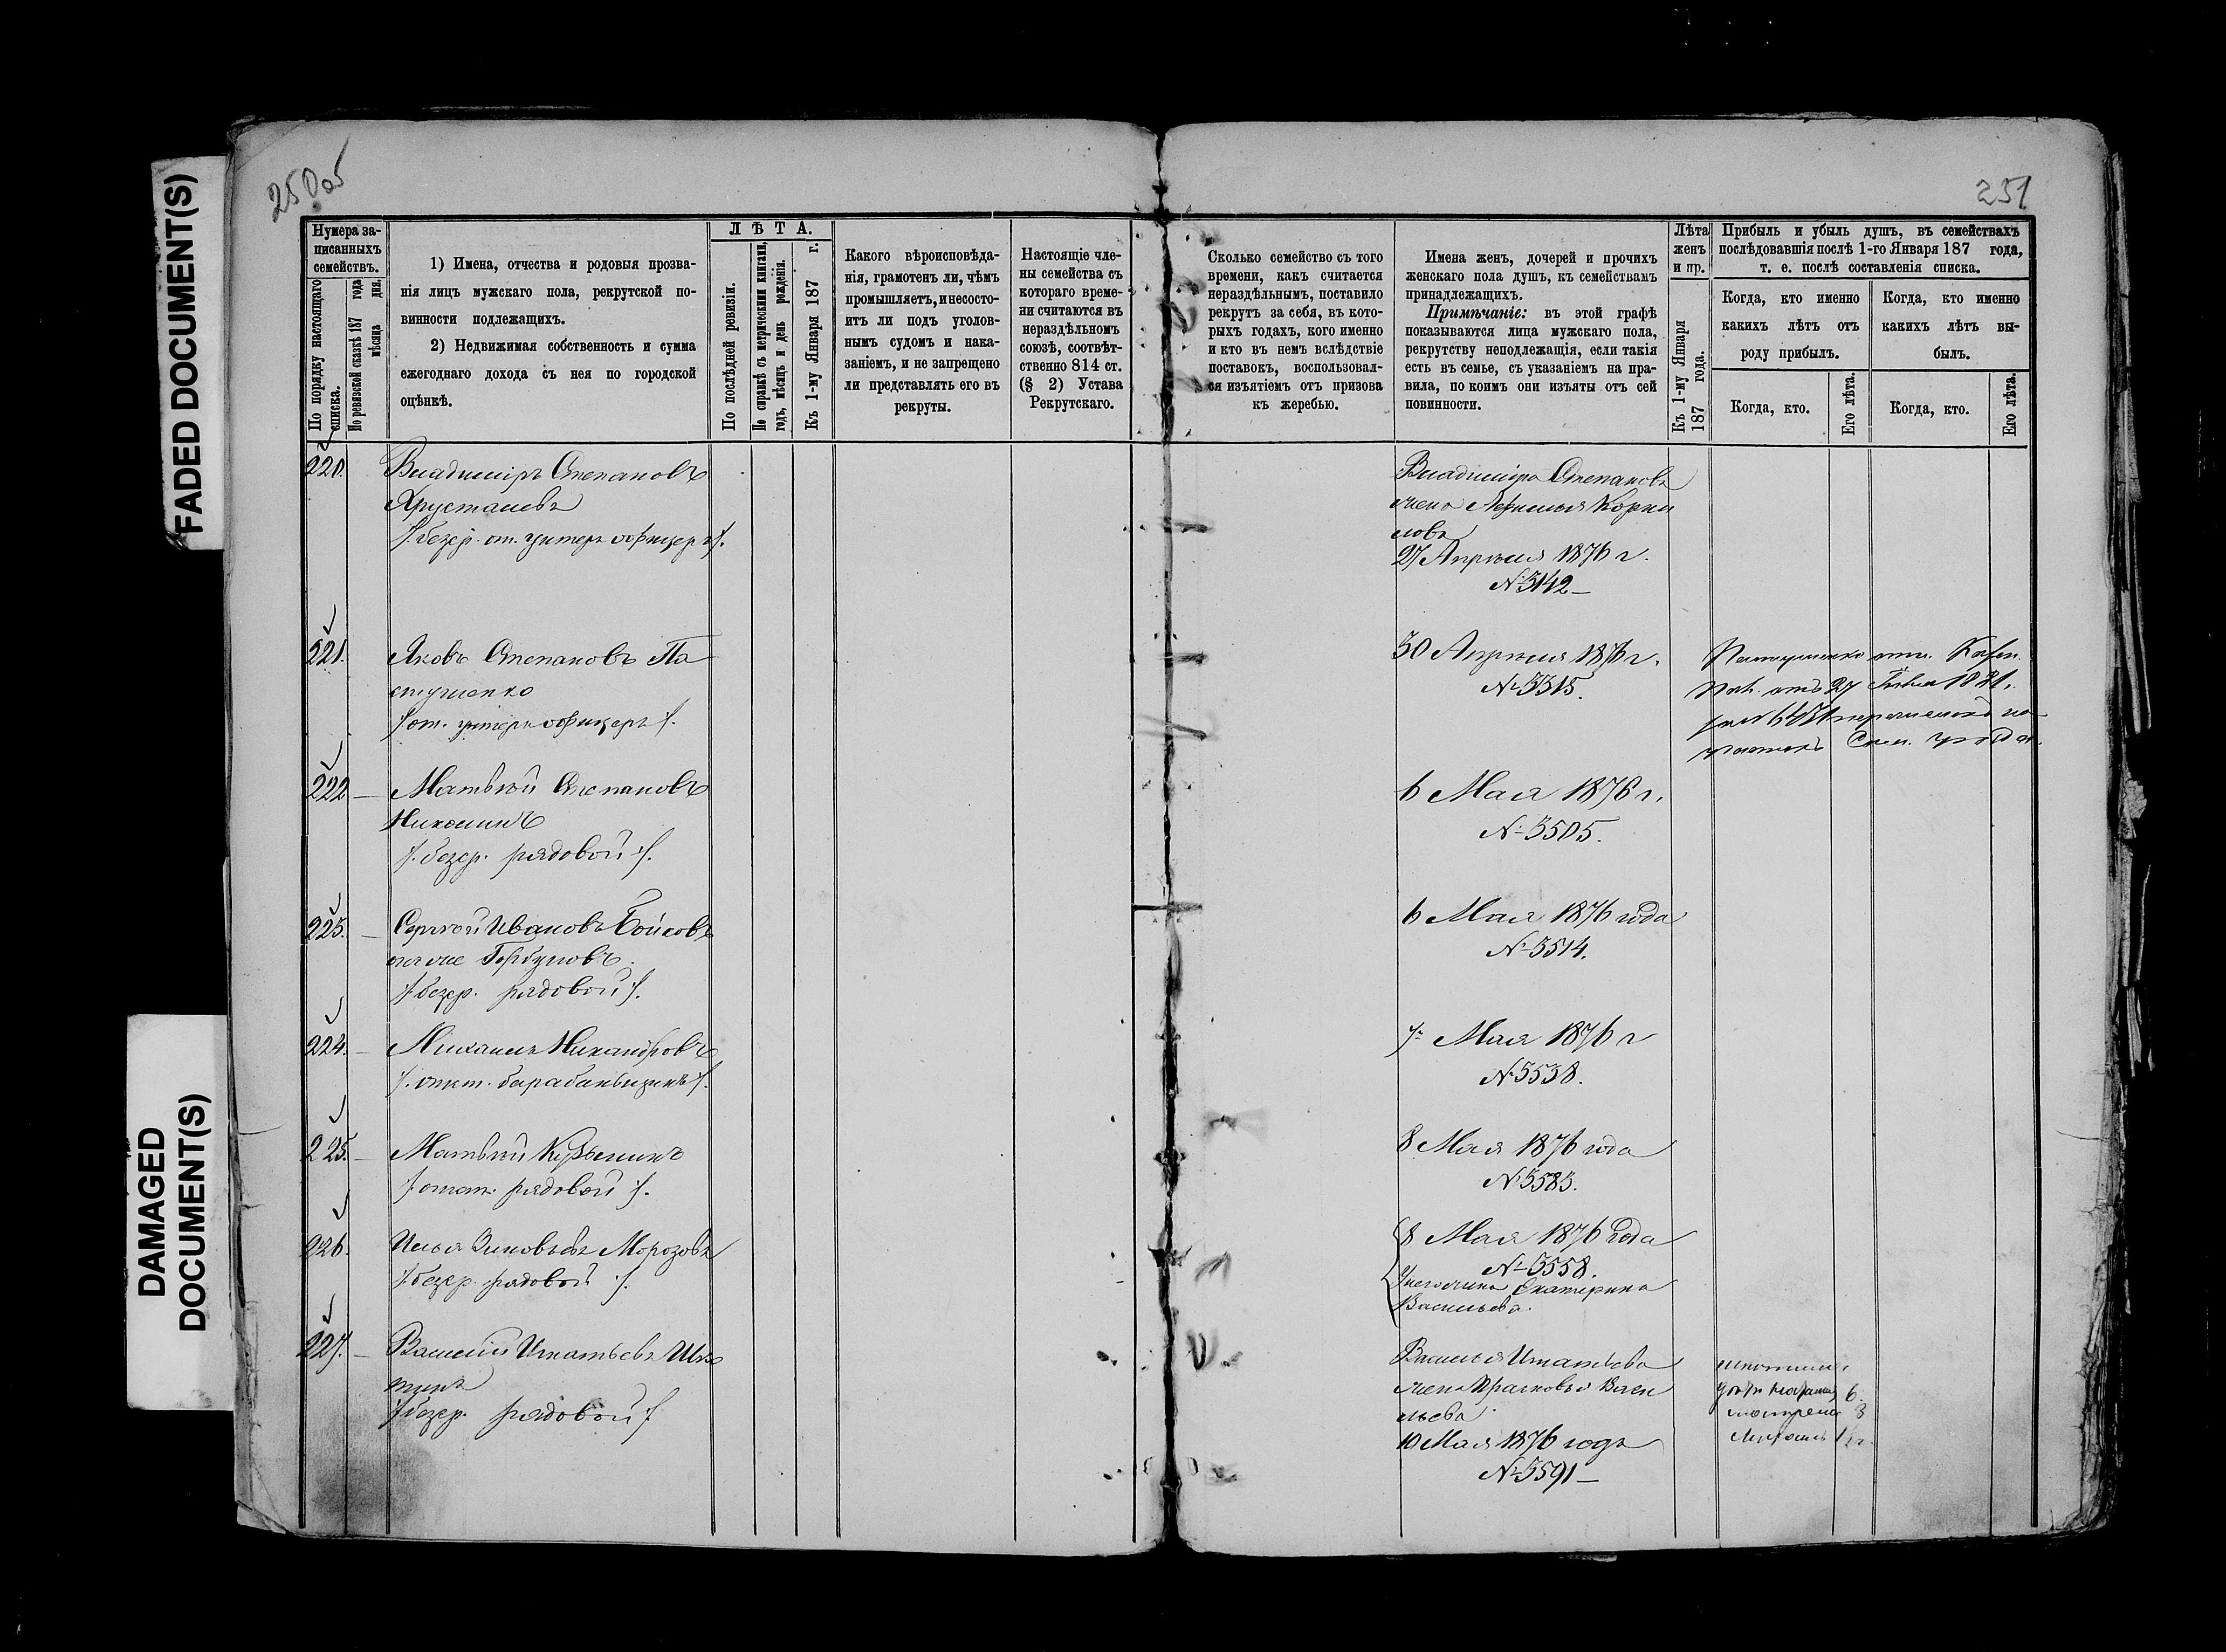 FADED DOCUMENT(S)
DAMAGED
DOCUMENT(S)
250об
251
Нумера за-
писанныхъ
семействъ.
По порядку настоящаго
списка.
По ревизской сказкѣ 187 года
мѣсяца дня.
1) Имена, отчества и родовыя прозва-
нія лицъ мужскаго пола, рекрутской по-
винности подлежащихъ.
2) Недвижимая собственность и сумма
ежегоднаго дохода съ нея по городской
оцѣнкѣ.
ЛѢТА.
По послѣдней ревизіи.
По справкѣ съ метрическими книгами,
годъ, мѣсяцъ и день рожденія.
Къ 1-му Января 187 г.
Какого вѣроисповѣда-
нія, грамотенъ ли, чѣмъ
промышляетъ, и несосто-
итъ ли подъ уголов-
нымъ судомъ и нака-
заніемъ, и не запрещено
ли представлять его въ
рекруты.
Настоящіе чле-
ны семейства съ
котораго време-
ни считаются въ
нераздѣльномъ
союзѣ, соотвѣт-
ственно 814 ст.
(§ 2) Устава
Рекрутскаго.
Сколько семейство съ того
времени, какъ считается
нераздѣльнымъ, поставило
рекрутъ за себя, въ кото-
рыхъ годахъ, кого именно
и кто въ немъ вслѣдствіе
поставокъ, воспользовал-
ся изъятіемъ отъ призова
къ жеребью.
Имена женъ, дочерей и прочихъ
женскаго пола душъ, къ семействамъ
принадлежащихъ.
Примѣчаніе: въ этой графѣ
показываются лица мужскаго пола,
рекрутству неподлежащія, если такія
есть въ семье, съ указаніемъ на пра-
вила, по коимъ они изъяты отъ сей
повинности.
Лѣта
женъ
и пр.
Къ 1-му Января
187 года.
Прибыль и убыль душъ, въ семействахъ
послѣдовавшія послѣ 1-го Января 187 года,
т. е. послѣ составленія списка.
Когда, кто именно
какихъ лѣтъ отъ
роду прибылъ.
Когда, кто именно
какихъ лѣтъ вы-
былъ.
Когда, кто.
Его лѣта.
Когда, кто.
Его лѣта.
220. Владиміръ Степановъ
Хрусталевъ
/: безср. от. унтеръ офицеръ :/.
Владиміра Степанова
жена Корни
лова
27 Апрѣля 1876 г.
№ 3142
221. Яковъ Степановъ Па
стушенко
/ от. унтеръ офицеръ /.
30 Апрѣля 1876 г.
№ 3315.
222 Матвѣй Степановъ
Никонинъ
/. безср. рядовой :/.
6 Мая 1876 г.
№ 3505.
223. Сергѣй Ивановъ Бойковъ
онъ же Горбуновъ.
/. безср. рядовой /.
6 Мая 1876 года
№ 3514.
224. Михаилъ Никандровъ
/. отст. барабанщикъ /.
7 Мая 1876 г
№ 3538.
225. Матвѣй Кузьминъ
/ отст. рядовой :/.
8 Мая 1876 года
№ 3583.
226. Илья Зиновьевъ Морозовъ
/. безср. рядовой :/.
8 Мая 1876 года
№ 3558.
У него жена Екатерина
Васильева.
227. Василій Игнатьевъ
/ безср. рядовой /
Василья Игнатьева
жена Прасковья Васи
льева
10 Мая 1876 года
№ 3591
6
3